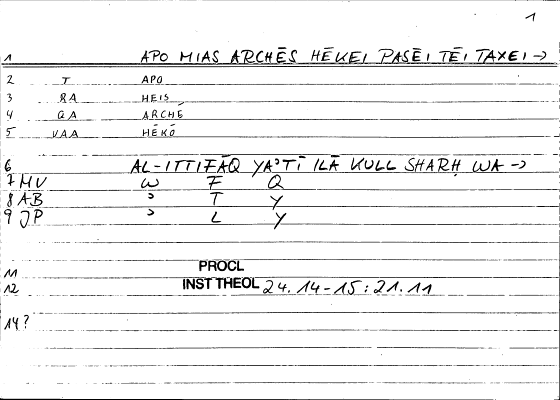 1
1 APO MIAS ARCHĒS HĒKEI PASĒI TĒI TAXEI →
2 T APO
3 RA HEIS
4 QA ARCHĒ
5 VAA HĒKŌ
6 AL-ITTIFĀQ YAʾTĪ ILĀ KULL SHARḤ WA →
7 MV W F Q
8 AB ʾ T Y
9 JP ʾ L Y
PROCL
11
12 INST THEOL 24.14-15:21.11
14?